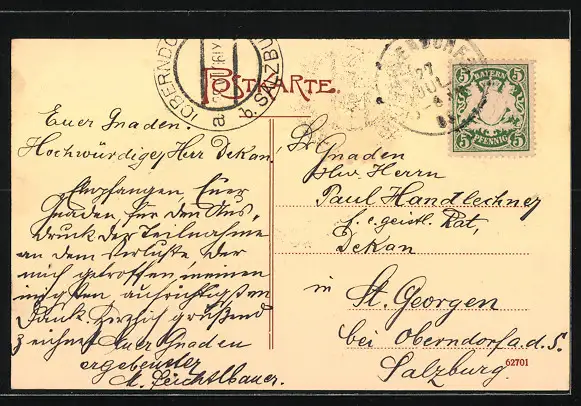 POSTKARTE.
OBERNDORF
b. SALZBURG
a
27
BAYERN
5 5
PFENNIG
Euer Gnaden!
Hochwürdiger Herr Dekan!
Empfangen Euer
Gnaden für den Aus-
druck der Teilnahme
an dem Verluste der
mich getroffen meinen
innigsten, aufrichtigsten
Dank. Herzlich grüßend
zeichnet Euer Gnaden
ergebenster
Leichtlbauer.
Sr. Gnaden
Hw. Herrn
Paul Handlechner
f. e. geistl. Rat,
Dekan
in
St. Georgen
bei Oberndorf a. d. S.
Salzburg.
62701